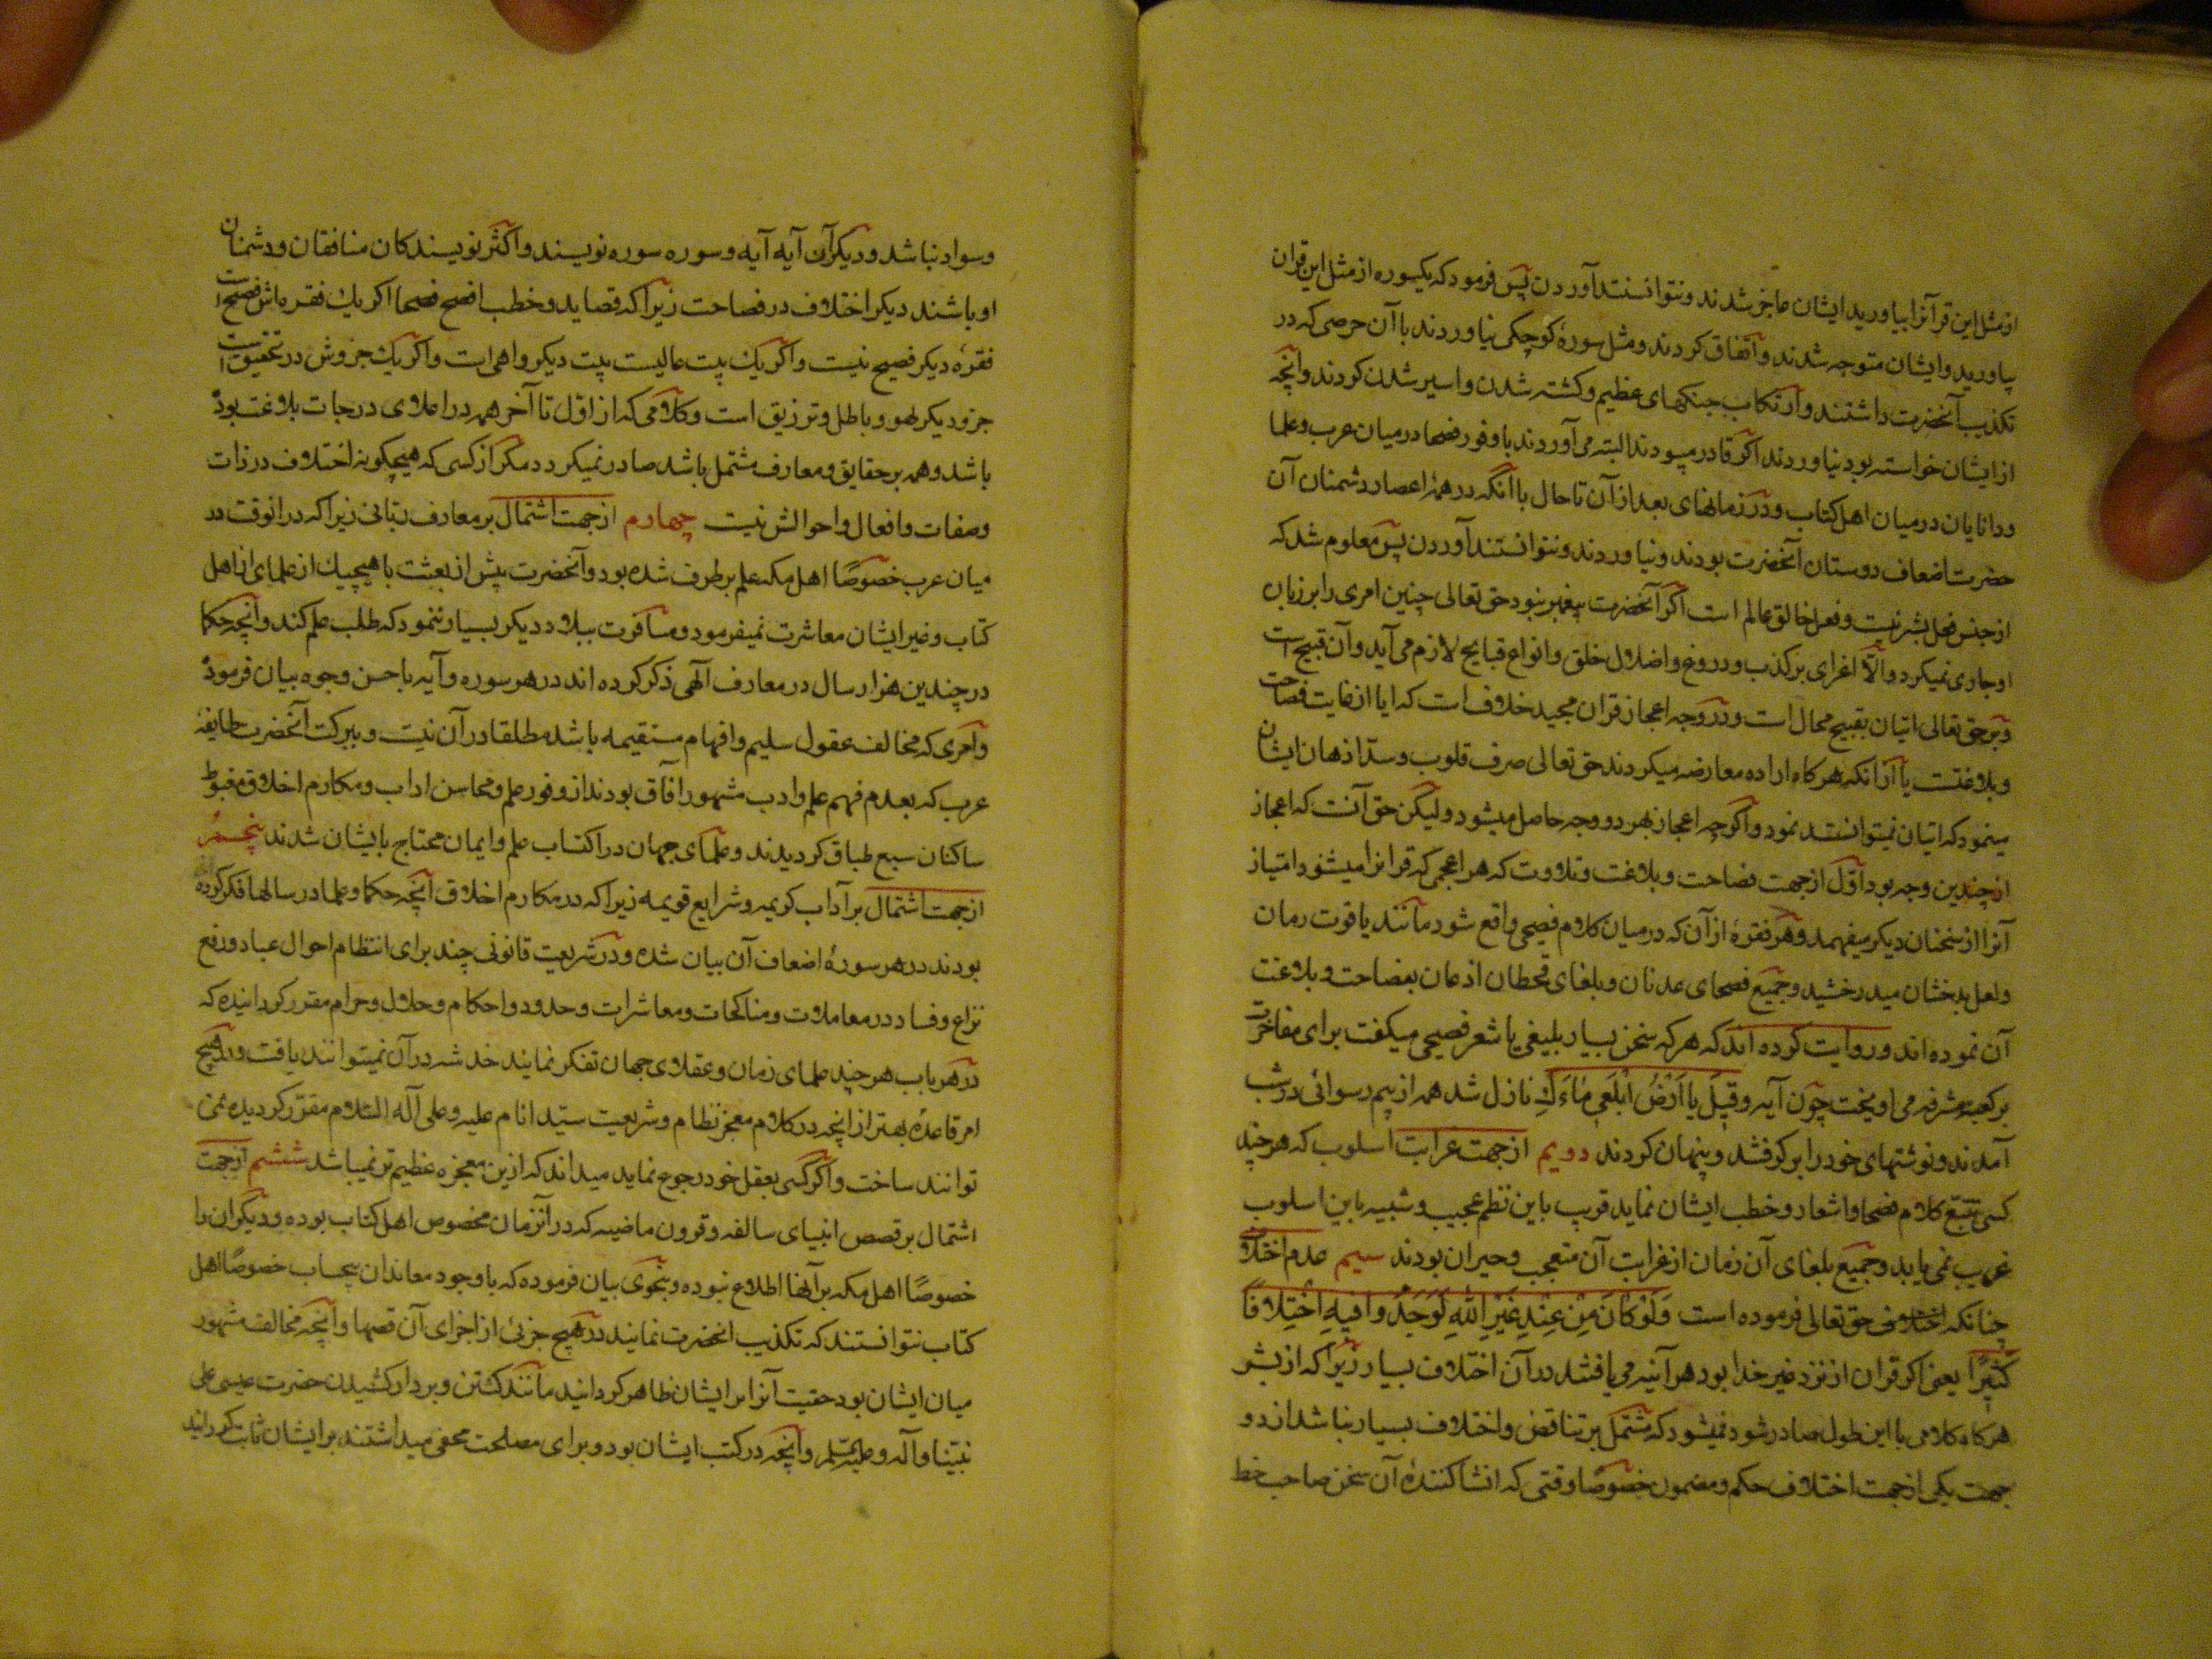 ازمثل این قرآنرا بیاورید ایشان عاجز شدند و نتوانستند آوردن پس فرمود که یکسوره از مثل این قران
بیاورید و ایشان متوجه شدند و اتفاق کردند و مثل سورهٔ کوچکی نیاوردند با آن حرصی که در
تکذیب آنحضرت داشتند و ارتکاب جنکهای عظیم و کشته شدن و اسیر شدن کردند و آنچه
از ایشان خواسته بود نیاوردند اکر قادر میبودند البته می آوردند با وفور فصحا در میان عرب و علما
و دانایان در میان اهل کتاب و در زمانهای بعد از آن تا حال با آنکه در همهٔ اعصار دشمنان آن
حضرت اضعاف دوستان آنحضرت بودند و نیاوردند و نتوانستند آوردن پس معلوم شد که
از جنس فعل بشر نیست و فعل خالق عالم است اکر آنحضرت پیغمبر نبود حق تعالی چنین امری را بر زبان
او جاری نمیکرد و الّا اغرای بر کذب و دروغ و اضلال خلق و انواع قبایح لازم می آید و آن قبیح است
و بر حق تعالی اتیان بقبیح محال است و در وجه اعجاز قران مجید خلاف است که ایا از غایت فصاحت
و بلاغتست یا از انکه هر کاه اراده معارضه میکردند حق تعالی صرف قلوب و سدّ اذهان ایشان
مینمود که اتیان نمیتوانستند نمود و اکرچه اعجاز بهر دو وجه حاصل میشود و لیکن حق آنست که اعجاز
از چندین وجه بود اوّل از جهت فصاحت و بلاغت و تلاوت که هر اعجمی که قرانرا میشنود امتیاز
آنرا از سخنان دیکر میفهمد و هر فقرهٔ از آن که در میان کلام فصیحی واقع شود مانند یاقوت رمان
و لعل بدخشان میدرخشید و جمیع فصحای عدنان و بلغای قحطان اذعان بفصاحت و بلاغت
آن نموده اند و روایت کرده اند که هر که سخن بسیار بلیغی یا شعر فصیحی میکفت برای مفاخرت
بر کعبه مشرفه می اویخت چون آیه وَقیلَ یا اَرْضُ ابْلَعی مٰاءَكِ نازل شد همه از بیم رسوائی در شب
آمدند و نوشتهای خود را بر کرفتند و پنهان کردند دویم از جهت غرابت اسلوب که هر چند
کسی تتبع کلام فصحا و اشعار و خطب ایشان نماید قریب باین نظم عجیب و شبیه باین اسلوب
غریب نمی یابد و جمیع بلغای آن زمان از غرابت آن متعجب و حیران بودند سیم عدم اختلا
چنانکه اختلاف حق تعالی فرموده است وَلَوْ كٰانَ مِنْ عِنْدِ غَیْرِ اللهِ لَوَجَدُوا فیهِ اخْتِلافًا
كَثیرًا یعنی اکر قران از نزد غیر خدا بود هر آینه می یافتند در آن اختلاف بسیار زیرا که از بشر
هر کاه کلامی با این طول صادر شود نمیشود که مشتمل بر تناقض و اختلاف بسیار نباشد از دو
جهت یکی از جهت اختلاف حکم و مضمون خصوصًا وقتی که انشا کنندهٔ آن سخن صاحب خط
و سواد نباشد و دیکر آن آیه آیه و سوره سوره نویسند و اکثر نویسندکان منافقان و دشمنان
او باشند دیکر اختلاف در فصاحت زیرا که قصاید و خطب افصح فصحا اکر یك فقره اش فصیح است
فقرهٔ دیکر فصیح نیست و اکر یك بیت عالیست بیت دیکر واهی است و اکر یك جزوش در تحقیق است
جزو دیکر لهو و باطل و تزریق است و کلامی که از اوّل تا آخر همه در اعلای درجات بلاغت بوده
باشد و همه بر حقایق و معارف مشتمل باشد صادر نمیکردد مکر از کسی که هیچکونه اختلاف در ذات
و صفات و افعال و احوالش نیست چهارم از جهت اشتمال بر معارف ربّانی زیرا که در انوقت در
میان عرب خصوصًا اهل مکه علم بر طرف شده بود و آنحضرت پیش از بعثت با هیچیك از علمای از اهل
کتاب و غیر ایشان معاشرت نمیفرمود و مسافرت ببلاد دیکر بسیار ننمود که طلب علم کند و آنچه حکما
در چندین هزار سال در معارف آلهی ذکر کرده اند در هر سوره و آیه باحسن وجوه بیان فرموده
و امری که مخالف عقول سلیم و افهام مستقیمه باشد مطلقا در آن نیست و ببرکت آنحضرت طایفهٔ
عرب که بعدم فهم علم و ادب مشهور افاق بودند از وفور علم و محاسن اداب و مکارم اخلاق مغبوط
ساکنان سبع طباق کردیدند و علمای جهان در اکتساب علم و ایمان محتاج بایشان شدند پنجم
از جهت اشتمال بر آداب کریمه و شرایع قویمه زیرا که در مکارم اخلاق آنچه حکما و علما در سالها فکر کرده
بودند در هر سورهٔ اضعاف آن بیان شده و در شریعت قانونی چند برای انتظام احوال عباد و رفع
نزاع و فساد در معاملات و مناکحات و معاشرات و حدود و احکام و حلال و حرام مقرر کردانیده که
در هر باب هر چند علمای زمان و عقلای جهان تفکر نمایند خدشه در آن نمیتوانند یافت و در هیچ
امر قاعدهٔ بهتر از انچه در کلام معجز نظام و شریعت سیّد انام علیه و علی آله السّلام مقرّر کردیده نمی
توانند ساخت و اکر کسی بعقل خود رجوع نماید میداند که ازین معجزه عظیم تر نمیباشد ششم از جهت
اشتمال بر قصص انبیای سالفه و قرون ماضیه که در آنزمان مخصوص اهل کتاب بوده و دیکران را
خصوصًا اهل مکه بر آنها اطلاع نبوده و بنحوی بیان فرموده که با وجود معاندان بیحساب خصوصًا اهل
کتاب نتوانستند که تکذیب انحضرت نمایند در هیچ جزئی از اجزای آن قصها و آنچه مخالف مشهور
میان ایشان بود حقیت آنرا بر ایشان ظاهر کردانید مانند کشتن و بر دار کشیدن حضرت عیسی علی
نبیّنا و آله و علیه السّلم و آنچه در کتب ایشان بود و برای مصلحت مخفی میداشتند بر ایشان ثابت کردانید